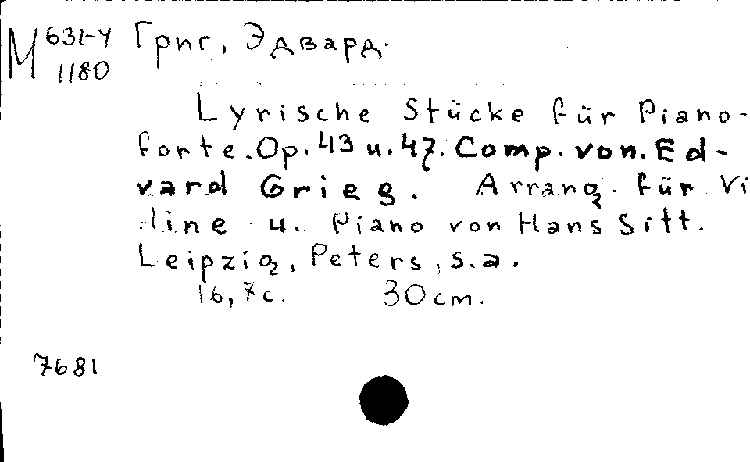 М 631-4 Григ, Эдвард.
1180
Lyrische Stücke für Piano-
forte. Op. 43 u. 47. Comp. von. Ed-
vard Grieg. Arrang. für Vi
line u. Piano von Hans Sitt.
Leipzig, Peters, s.a.
16, 7 с. 30 cm.
7681